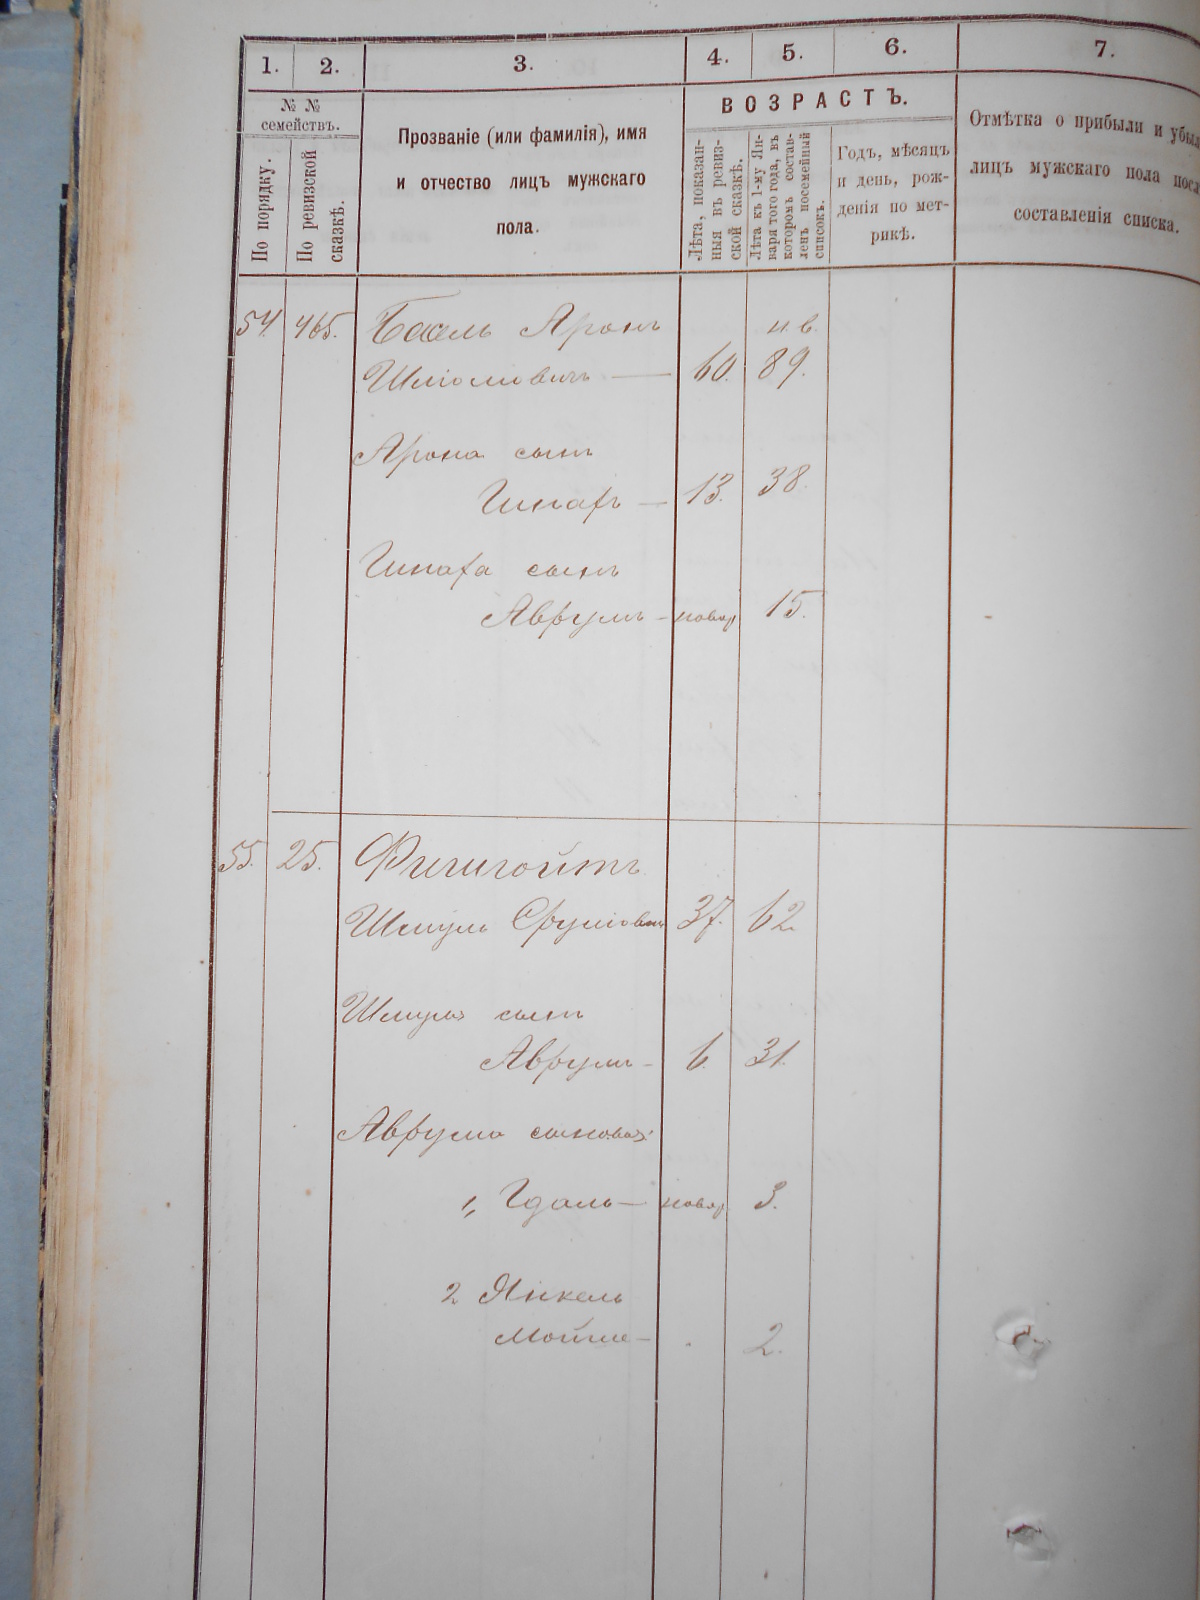 1. 2. 3. 4. 5. 6. 7.
№ №
семействъ.
По порядку.
По ревизской
сказкѣ.
Прозваніе (или фамилія), имя
и отчество лицъ мужскаго
пола.
ВОЗРАСТЪ.
Лѣта, показан-
ныя въ ревиз-
ской сказкѣ.
Лѣта къ 1-му Ян-
варя того года, въ
которомъ состав-
ленъ посемейный
списокъ.
Годъ, мѣсяцъ
и день, рож-
денія по мет-
рикѣ.
Отмѣтка о прибыли и убыли
лицъ мужскаго пола посл
составленія списка.
54. 465. Аронъ
Шліомовичъ — 60. 89.
Арона сынъ
13. 38.
сынъ
Аврумъ — новор 15.
55. 25.
Шмуль Сруліовичъ 37. 62.
Шмуля сынъ
Аврумъ - 6. 31.
Аврума сыновья:
1, Гдаль — новор 3.
2 Янкель
Мойше — 2.